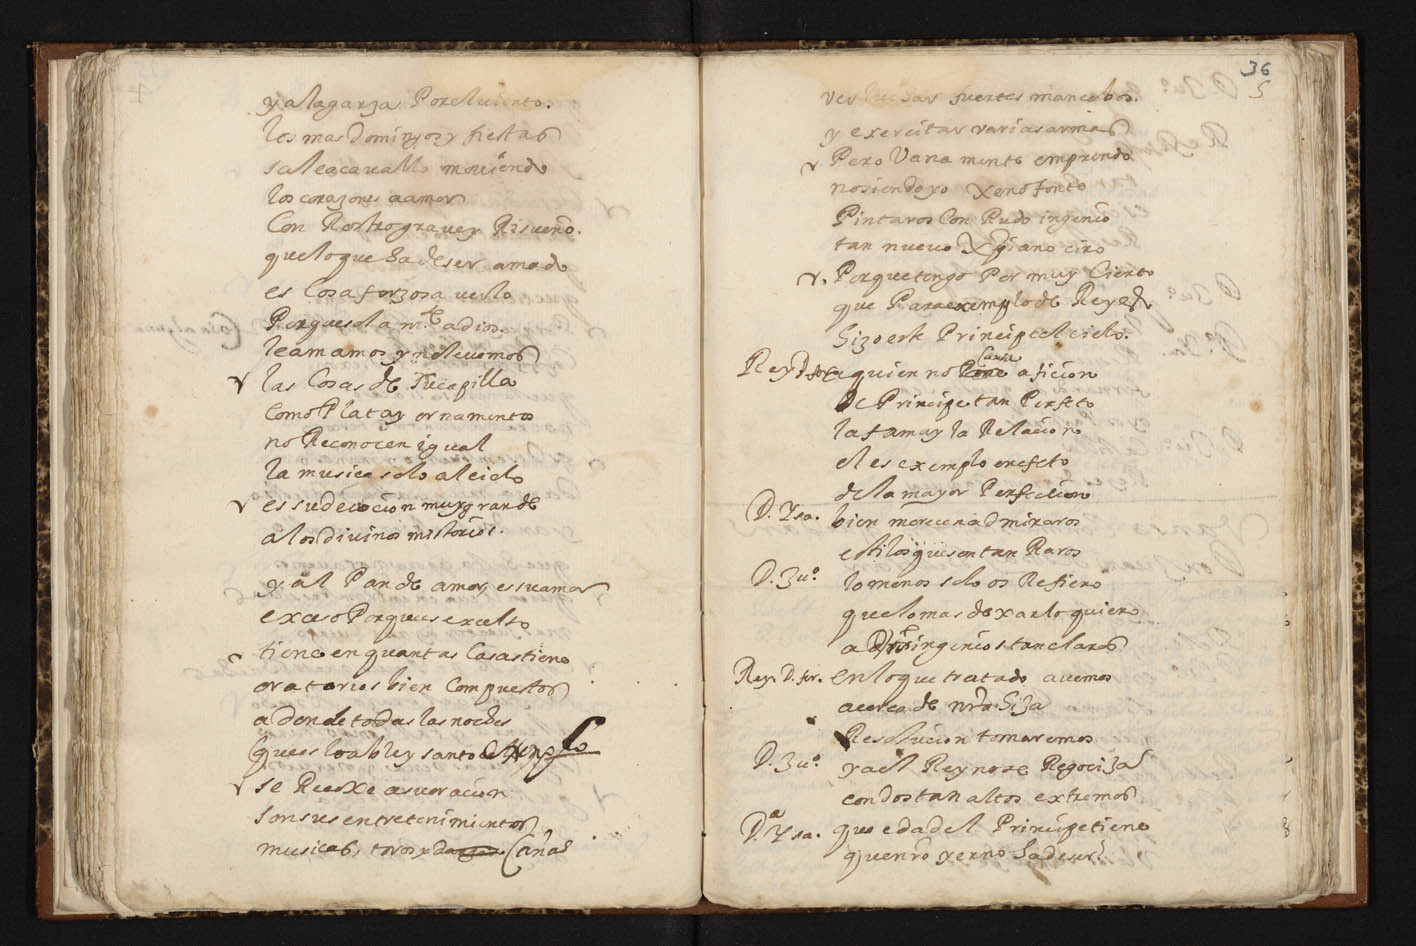 y a la garza Por el viento.
los mas Domingos y fiestas
sale a cauallo mouiendo
los corazones a amor
Con Rostro graue y Risueño.
que lo que ha de ser amado
es Cosa forzosa verlo
Porque sola mte a dios
le amamos y no le vemos
las Cosas de su capilla
como Plata y ornamentos
no Reconocen igual
la musica solo al cielo
es su deuocion muy grande
a los diuinos misterios.
y al Pan de amor, es su amor
exceso Porque es excelso
tiene en quantas Casas tiene
oratorios bien Compuestos
a donde todas las noches
que es loable y santo exemplo
se Recoxe a su oracion
son sus entretenimientos
musicas, toros y danzas Cañas
36
5
ver fuertes mancebos.
y exercitar varias armas
Pero Vana mente emprendo
no siendo yo Xenofonte
Pintaros Con Rudo ingenio
tan nueuo Xpiano ciro
Porque tengo Por muy Cierto
que Para exemplo de Reyes
hizo este Principe el cielo.
Rey D. fer a quien no Pone causa aficion
de Principe tan Perfeto
la fama y la Relacion
el es exemplo en efeto
de la mayor Perfecion
D. Ysa. bien merecen admiraros
estilos que son tan Raros
D. Ju.º lo menos solo os Refiero
que lo mas dexarlo quiero
a ingenios tan claros
Rey. D. fer. en lo que tratado auemos
acerca de nrã hija
Resolucion tomaremos
D. Ju.º y a el Reyno se Regocija
con dos tan altos extremos
D.ª Ysa. que edad el Principe tiene
que nrõ yerno ha de ser?